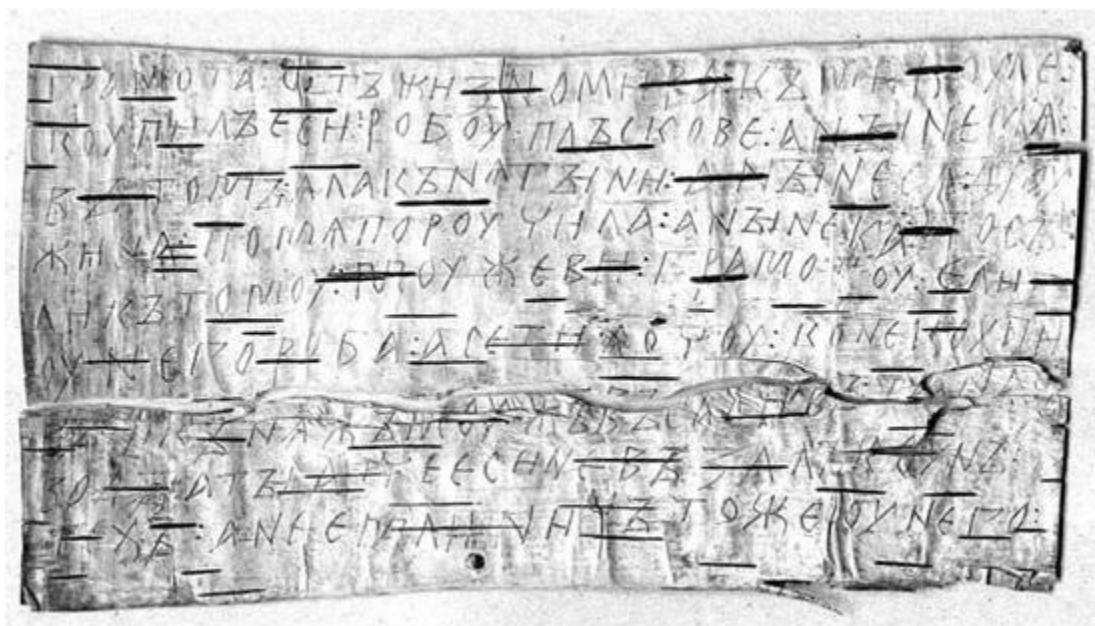 ГРАМОТА : ОТЪ ЖИЗНОМИРА : КЪ МИКОУЛЕ :
КОУПИЛЪ ЕСИ : РОБОУ : ПЛЪСКОВЕ : А НЪІНЕ МѦ :
ВЪ ТОМЪ : ѦЛА КЪНѦГЪІНИ : А НЪІНЕ СѦ ДРОУ
ЖИНА : ПО МѦ ПОРОУЧИЛА : А НЪІНЕ КА : ПОСЪ
ЛИ КЪ ТОМОУ : МОУЖЕВИ : ГРАМОТОУ : Е ЛИ
ОУ НЕГО РОБА : А СЕ ТИ ХОЧОУ : КОНЕ КОУПИ
ВЪ : И КЪНѦЖЪ МОУЖЪ ВЪСАДИВЪ : ТА НА СЪ
ВОДЪІ : А ТЪІ АТЧЕ ЕСИ НЕ ВЪЗАЛЪ КОУНЪ :
ТЕХЪ : А НЕ ЕМЛИ : НИЧЪТО ЖЕ ОУ НЕГО :